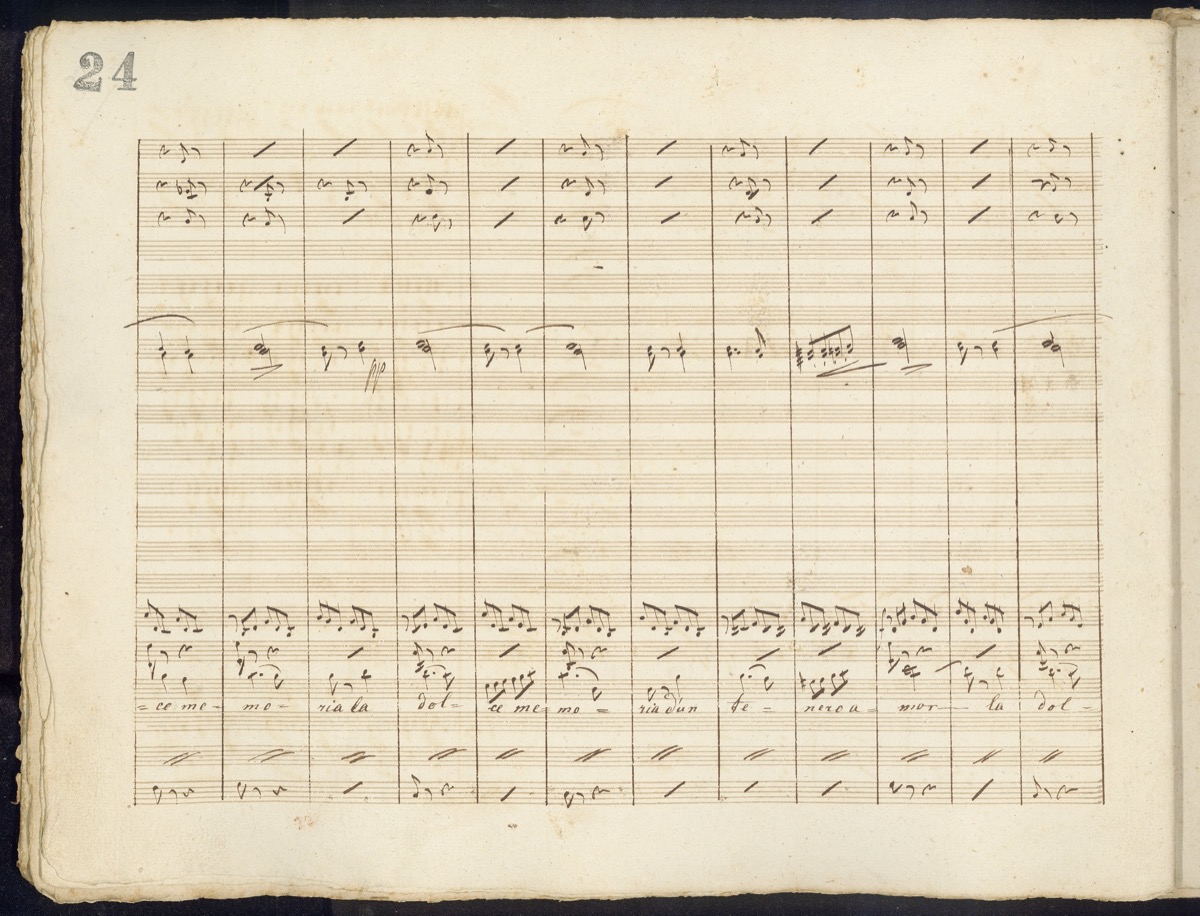 24
pp
= ce me - mo - ria la dol = ce me = mo = ria d'un te = nero a = mor — la dol -